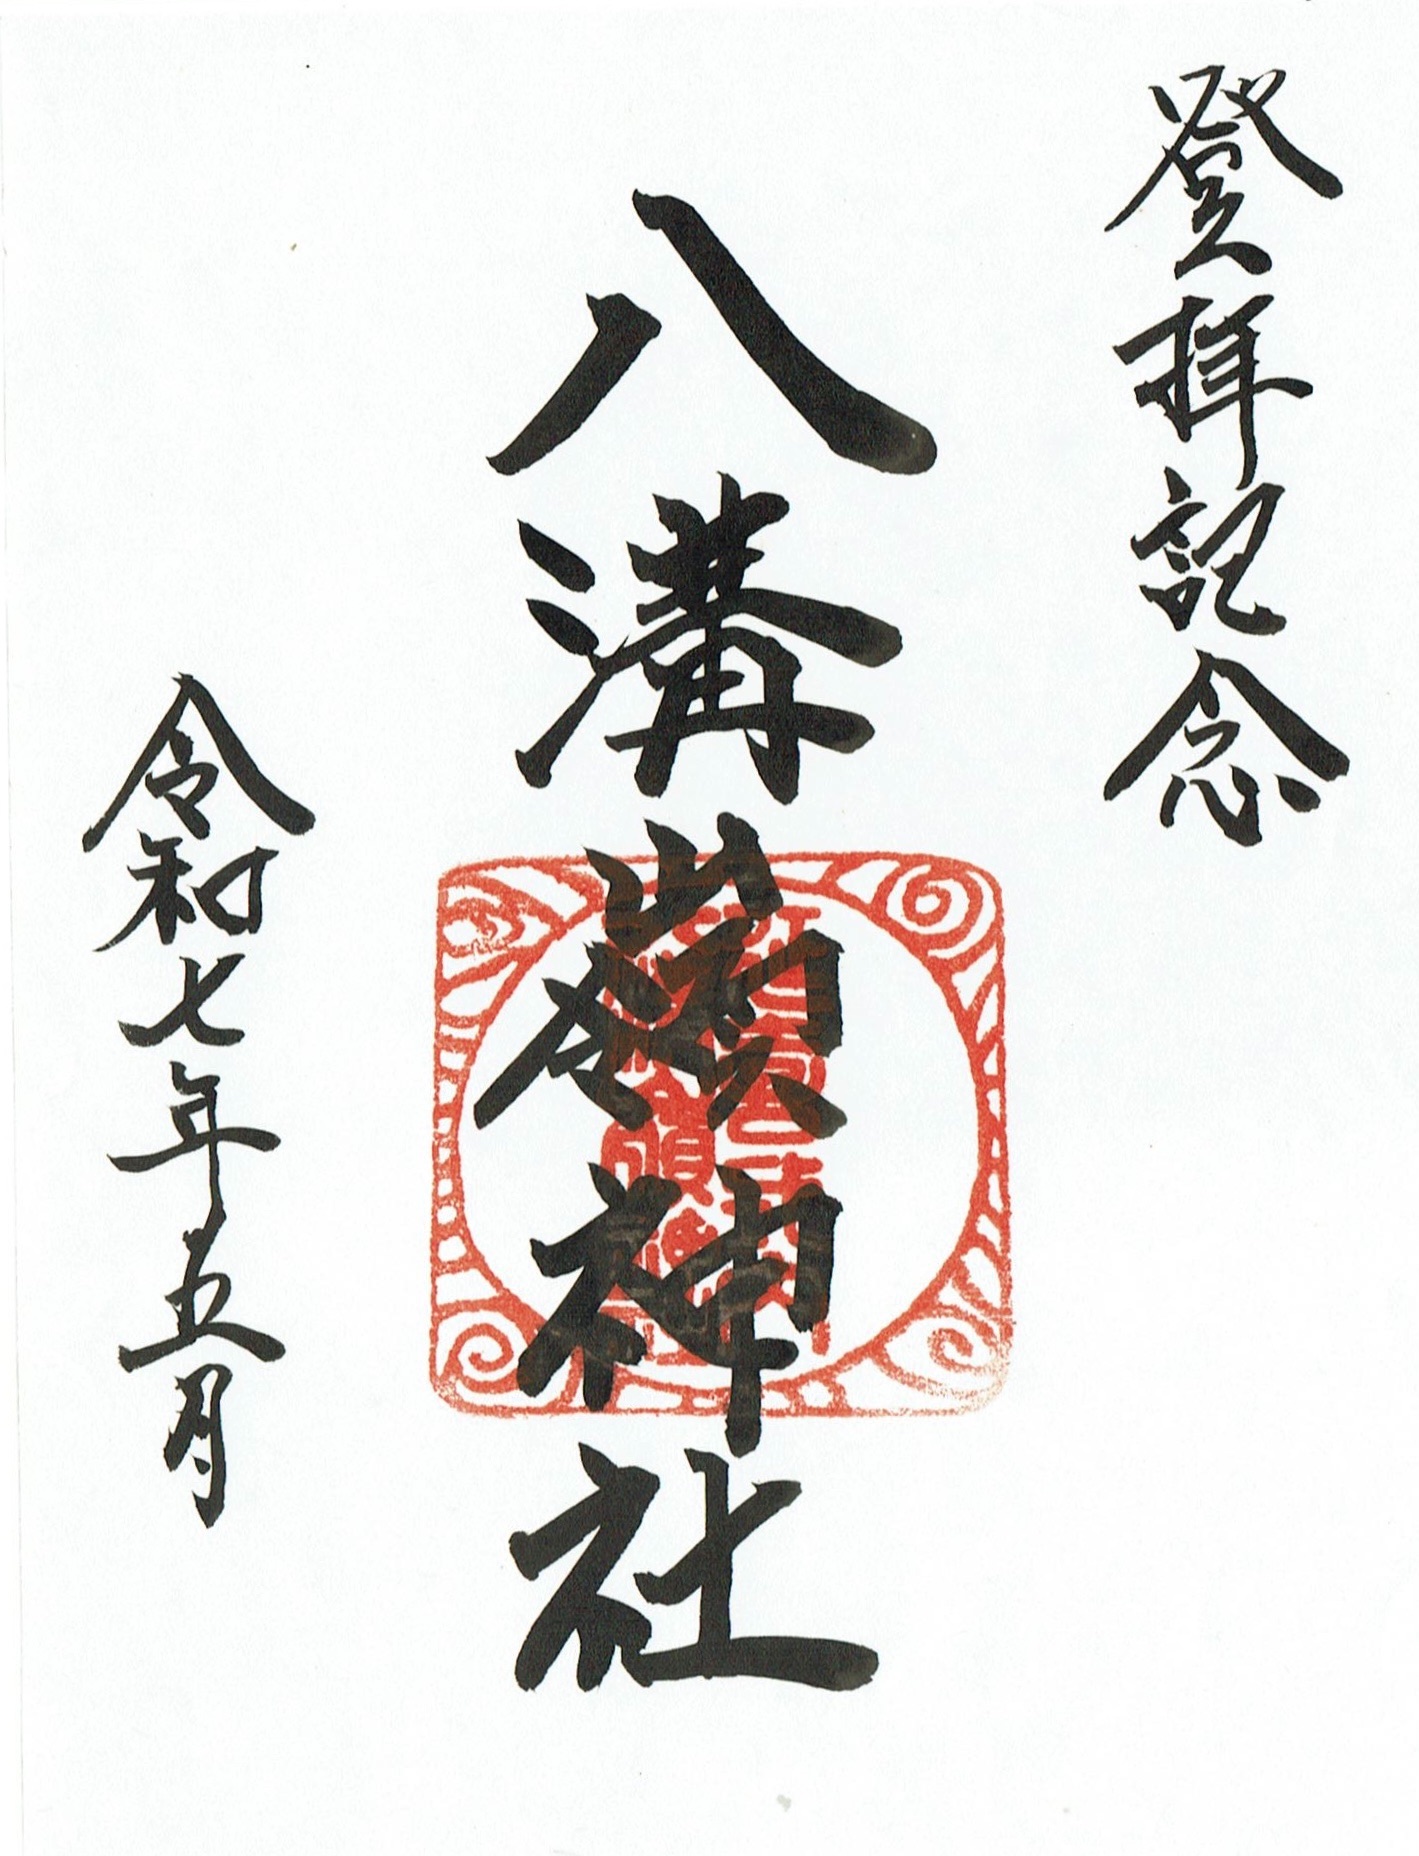 登拝記念
八溝嶺神社
令和七年五月